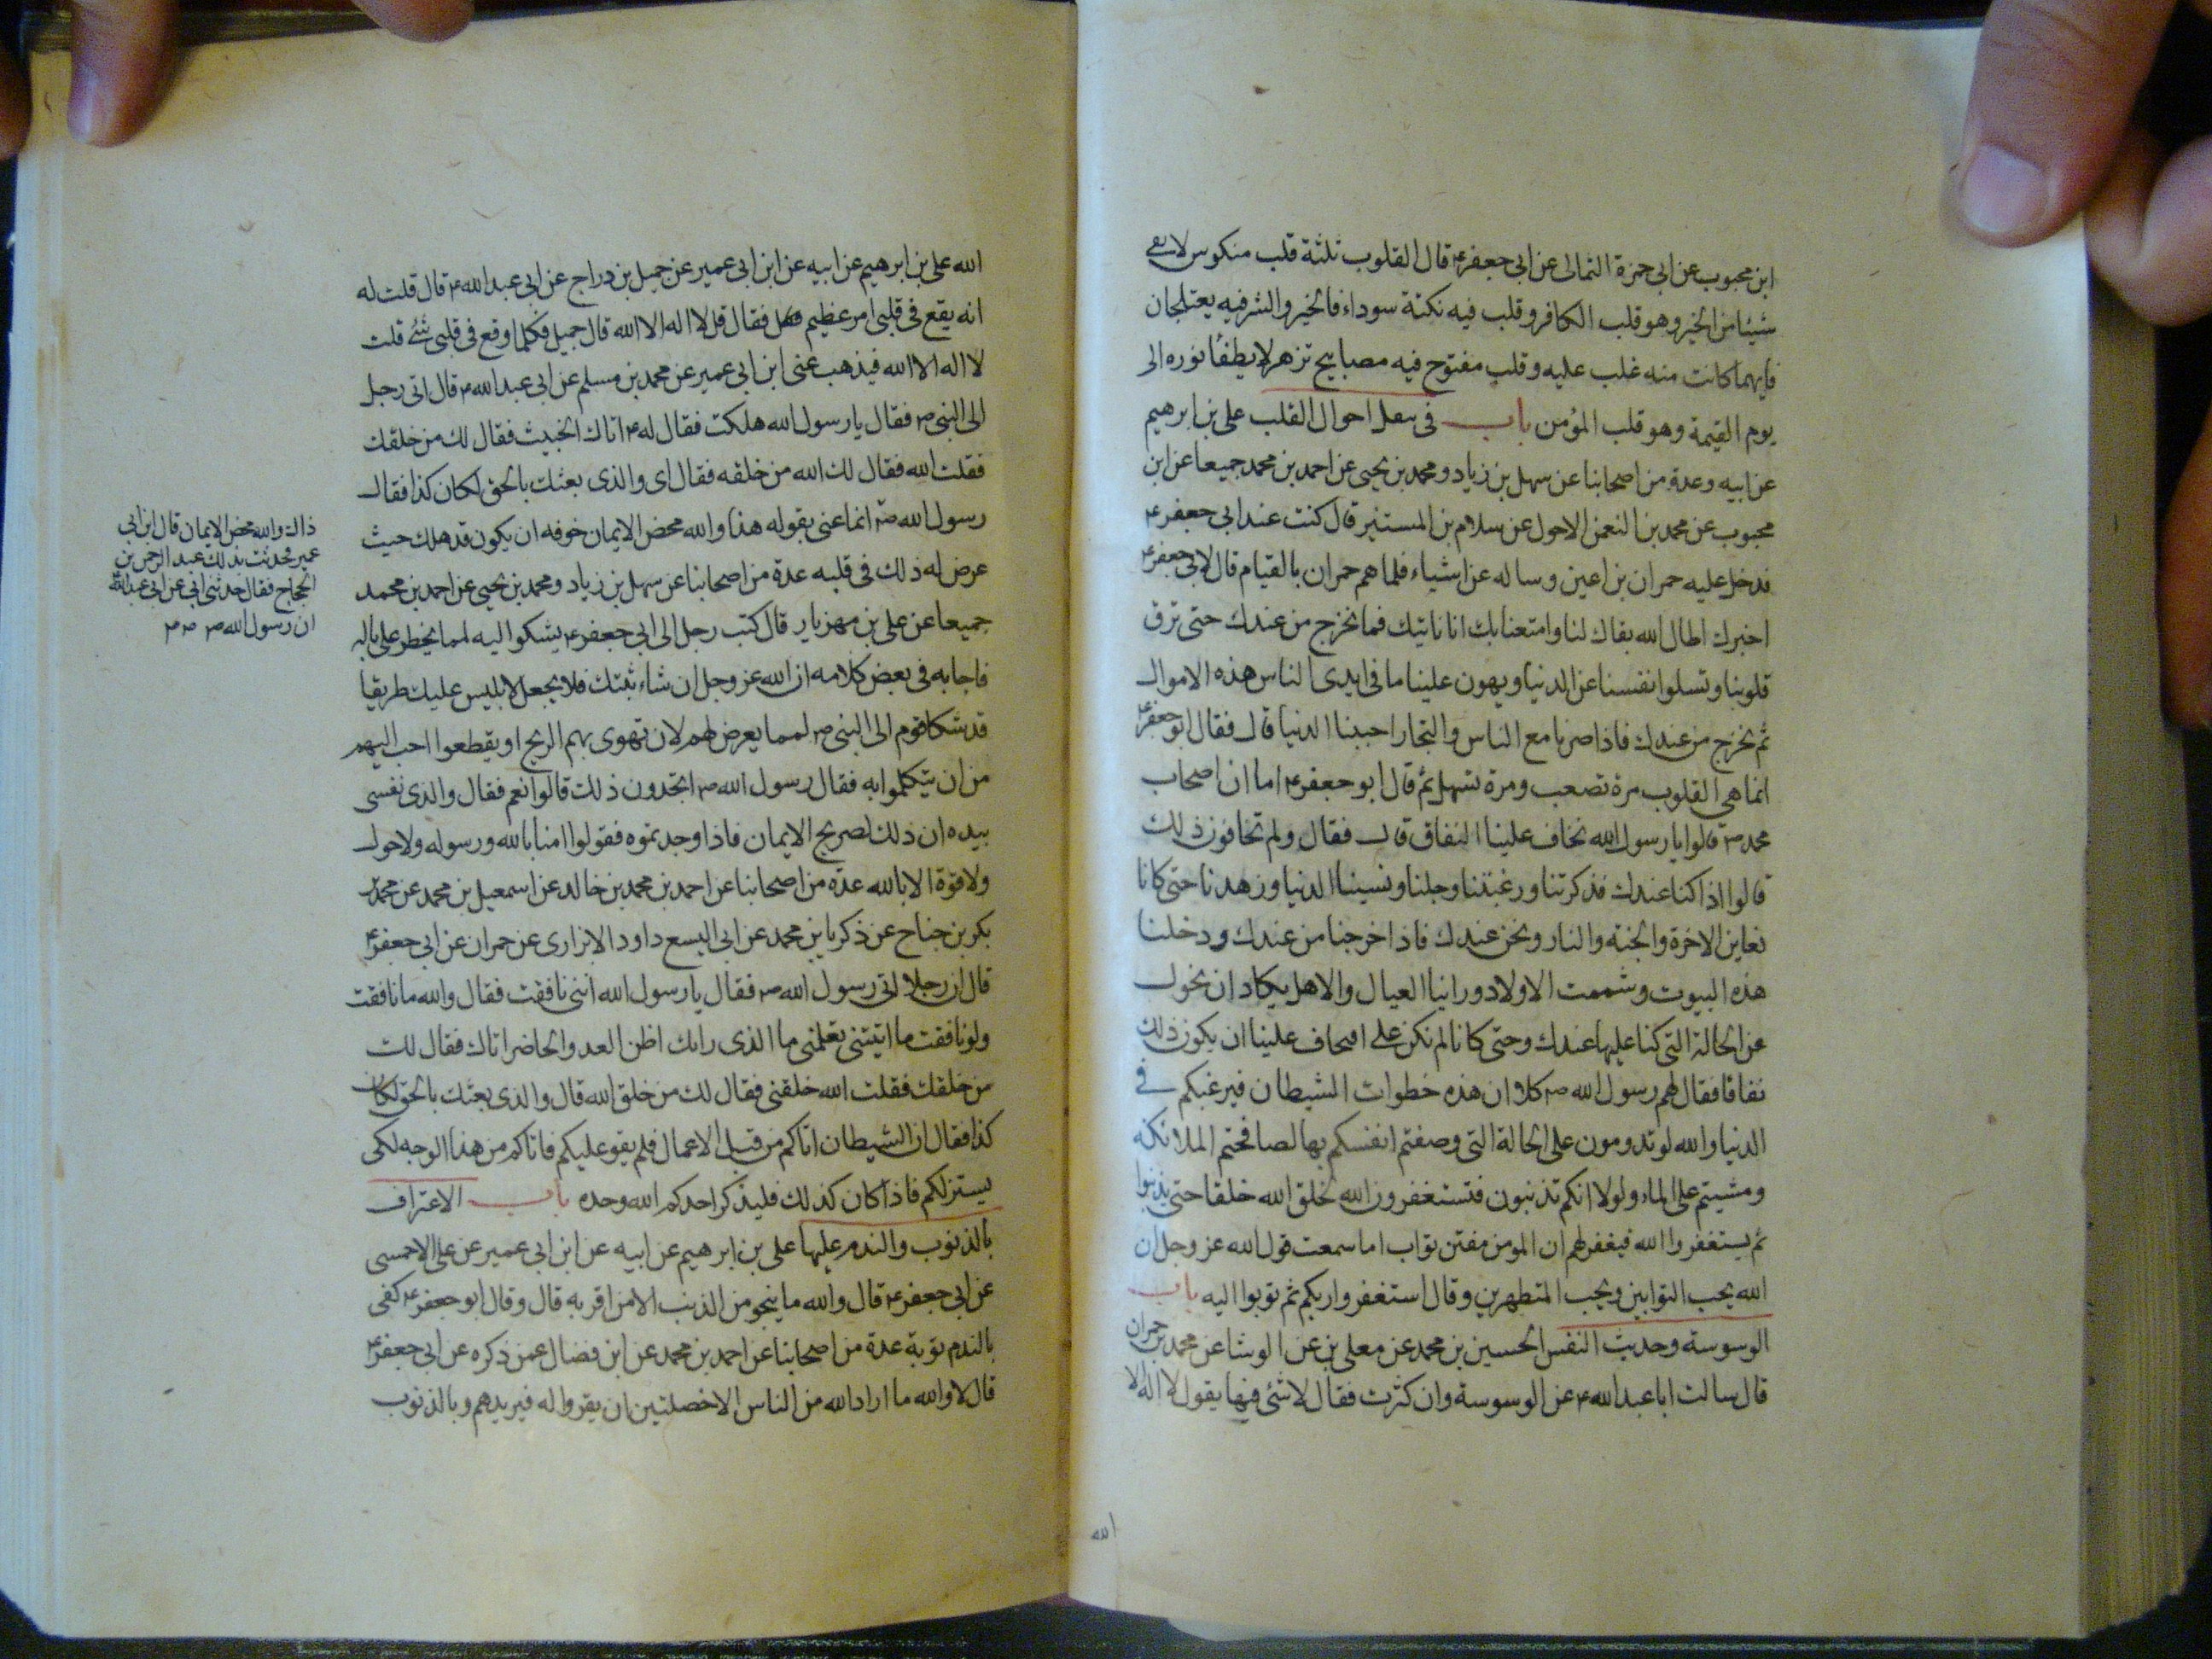 ابن محبوب عن ابى حمزة الثمالى عن ابى جعفر ع قال القلوب ثلثة قلب منكوس لا يعى
شيئا من الخير وهو قلب الكافر وقلب فيه نكتة سوداء فالخير والشر فيه يعتلجان
فايهما كانت منه غلب عليه وقلب مفتوح فيه مصابيح تزهر لا يطفأ نوره الى
يوم القيمة وهو قلب المؤمن باب فى احوال القلب على بن ابرهيم
عن ابيه وعدة من اصحابنا عن سهل بن زياد ومحمد بن يحيى عن احمد بن محمد جميعا عن ابن
محبوب عن محمد بن النعمن الاحول عن سلام بن المستنير قال كنت عند ابى جعفر ع
فدخل عليه حمران بن اعين وساله عن اشياء فلما هم حمران بالقيام قال لابى جعفر ع
اخبرك اطال الله بقاك لنا وامتعنا بك انا ناتيك فما نخرج من عندك حتى ترق
قلوبنا وتسلوا نفسنا عن الدنيا ويهون علينا ما فى ايدى الناس هذه الاموال
ثم نخرج من عندك فاذا صرنا مع الناس والتجار احببنا الدنيا قال فقال ابو جعفر ع
انما هى القلوب مرة تصعب ومرة تسهل ثم قال ابو جعفر ع اما ان اصحاب
محمد ص قالوا يا رسول الله نخاف علينا النفاق قال فقال ولم تخافون ذلك
قالوا اذا كنا عندك فذكرتنا ورغبتنا وجلنا ونسينا الدنيا وزهدنا حتى كانا
نعاين الاخرة والجنة والنار ونحن عندك فاذا خرجنا من عندك ودخلنا
هذه البيوت وشممت الاولاد وراينا العيال والاهل يكاد ان نحول
عن الحالة التى كنا عليها عندك وحتى كانا لم نكن على افتخاف علينا ان يكون ذلك
نفاقا فقال لهم رسول الله ص كلا ان هذه خطوات الشيطان فيرغبكم فى
الدنيا والله لو تدومون على الحالة التى وصفتم انفسكم بها لصافحتم الملائكة
ومشيتم على الماء ولولا انكم تذنبون فتستغفرون الله لخلق الله خلقا حتى يذنبوا
ثم يستغفروا الله فيغفر لهم ان المومن مفتن تواب اما سمعت قول الله عز وجل ان
الله يحب التوابين ويحب المتطهرين وقال استغفروا ربكم ثم توبوا اليه باب
الوسوسة وحديث النفس الحسين بن محمد عن معلى بن عن الوشا عن محمد بن حمران
قال سالت ابا عبد الله ع عن الوسوسة وان كثرت فقال لا شئ فيها يقول لا اله الا
الله
الله على بن ابرهيم عن ابيه عن ابن ابى عمير عن جميل بن دراج عن ابى عبد الله ع قال قلت له
انه يقع فى قلبى امر عظيم فقال قل لا اله الا الله قال جميل فكلما وقع فى قلبى شئ قلت
لا اله الا الله فيذهب عنى ابن ابى عمير عن محمد بن مسلم عن ابى عبد الله ع قال اتى رجل
الى النبى ص فقال يا رسول الله هلكت فقال له ع اتاك الخبيث فقال لك من خلقك
فقلت الله فقال لك الله من خلقه فقال اى والذى بعثك بالحق لكان كذا فقال
رسول الله ص انما عنى بقوله هذا والله محض الايمان خوفه ان يكون قد هلك حيث
عرض له ذلك فى قلبه عدة من اصحابنا عن سهل بن زياد ومحمد بن يحيى عن احمد بن محمد
جميعا عن على بن مهزيار قال كتب رجل الى ابى جعفر ع يشكوا اليه لمما يخطر على باله
فاجابه فى بعض كلامه ان الله عز وجل ان شاء ثبتك فلا يجعل لابليس عليك طريقا
قد شكا قوم الى النبى ص لمما يعرض لهم لان تهوى بهم الريح او يقطعوا احب اليهم
من ان يتكلموا به فقال رسول الله ص اتجدون ذلك قالوا نعم فقال والذى نفسى
بيده ان ذلك لصريح الايمان فاذا وجدتموه فقولوا امنا بالله ورسوله ولا حول
ولا قوة الا بالله عدة من اصحابنا عن احمد بن محمد بن خالد عن اسمعيل بن محمد عن محمد بن
بكر بن جناح عن ذكريا بن محمد عن ابى اليسع داود الابزارى عن حمران عن ابى جعفر ع
قال ان رجلا اتى رسول الله ص فقال يا رسول الله اننى نافقت فقال والله ما نافقت
ولو نافقت ما اتيتنى تعلمنى ما الذى رابك اظن العدو الحاضر اتاك فقال لك
من خلقك فقلت الله خلقنى فقال لك من خلق الله قال والذى بعثك بالحق لكان
كذا فقال ان الشيطان اتاكم من قبل الاعمال فلم يقو عليكم فاتاكم من هذا الوجه لكى
يستزلكم فاذا كان كذلك فليذكر احدكم الله وحده باب الاعتراف
بالذنوب والندم عليها على بن ابرهيم عن ابيه عن ابن ابى عمير عن على الاحمسى
عن ابى جعفر ع قال والله ما ينجو من الذنب الا من اقر به قال وقال ابو جعفر ع كفى
بالندم توبة عدة من اصحابنا عن احمد بن محمد عن ابن فضال عمن ذكره عن ابى جعفر ع
قال لا والله ما اراد الله من الناس الا خصلتين ان يقروا له فيزيدهم وبالذنوب
ذاك والله محض الايمان قال ابن ابى
عمير فحدثت بذلك عبد الرحمن بن
الحجاج فقال حدثنى ابى عن ابى عبد الله
ان رسول الله ص